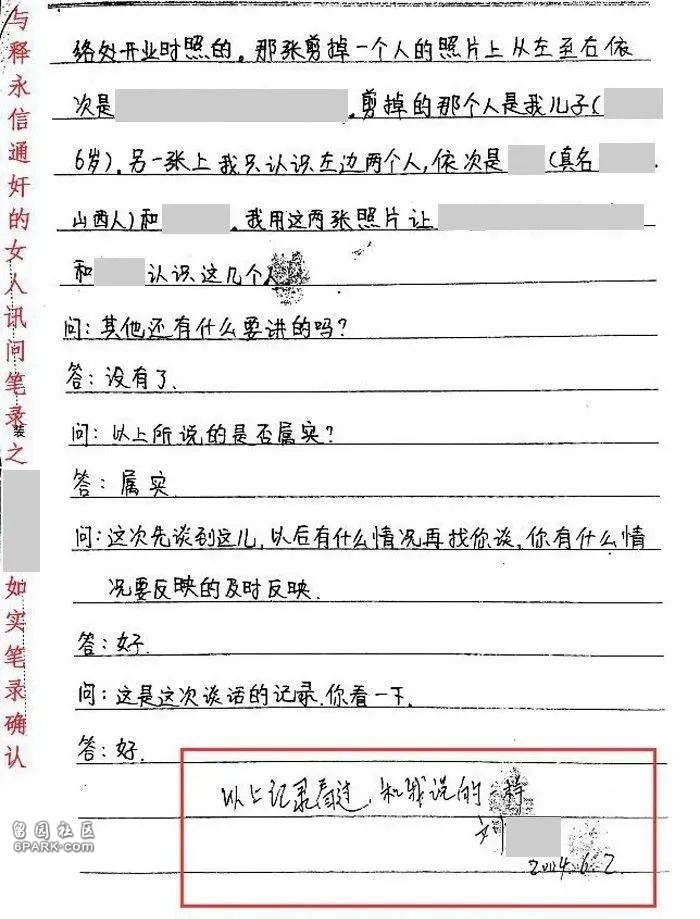 与释永信通奸的女人讯问笔录之
如实笔录确认
络处开业时照的。那张剪掉一个人的照片上从左至右依
次是 。剪掉的那个人是我儿子(
6岁)。另一张上我只认识左边两个人,依次是 (真名 .
山西人)和 。我用这两张照片让
和 认识这几个人
问:其他还有什么要讲的吗?
答:没有了.
问:以上所说的是否属实?
答:属实
问:这次先谈到这儿,以后有什么情况再找你谈,你有什么情
况要反映的及时反映.
答:好.
问:这是这次谈话的记录.你看一下.
答:好.
以上记录看过,和我说的一样
刘
2004.6.2
装
留园社区
6PARK.COM